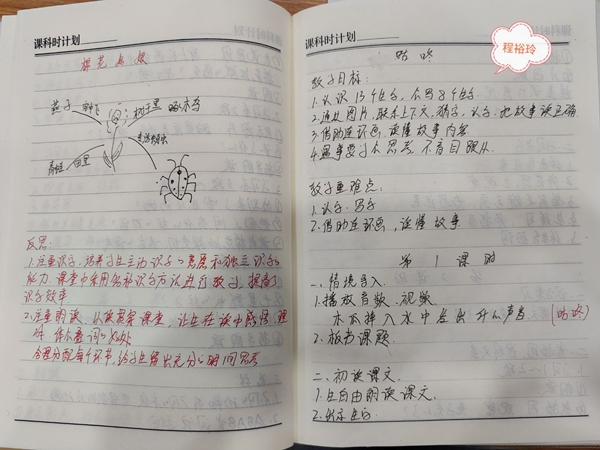 课科时计划
棉花姑娘
燕子
树干里
啄木鸟
田里
反思:
1.注重识字,培养学生主动识字的意愿和独立识字的
能力.课堂中采用多种识字方法进行教学,提高了
识字效率
2.注重朗读,以读贯穿课堂,让生在读中感悟、理
合理分配每个环节,给学生留出充分的时间思考
课科时计划
程裕玲
咕咚
教学目标:
1.认识13个生字,会写8个生字.
2.通过图片,联系上下文,猜字、认字.把故事读正确
3.借助连环画,读懂故事内容
4.遇事要学会思考,不盲目跟从.
教学重难点:
1.认字、写字
2.借助连环画,读懂故事
第1课时
一、情境导入.
1.播放音频、视频
木瓜掉入水中发出什么声音(咕咚)
2.板书课题.
二、初读课文.
1.生自由朗读课文.
2.出示生字.